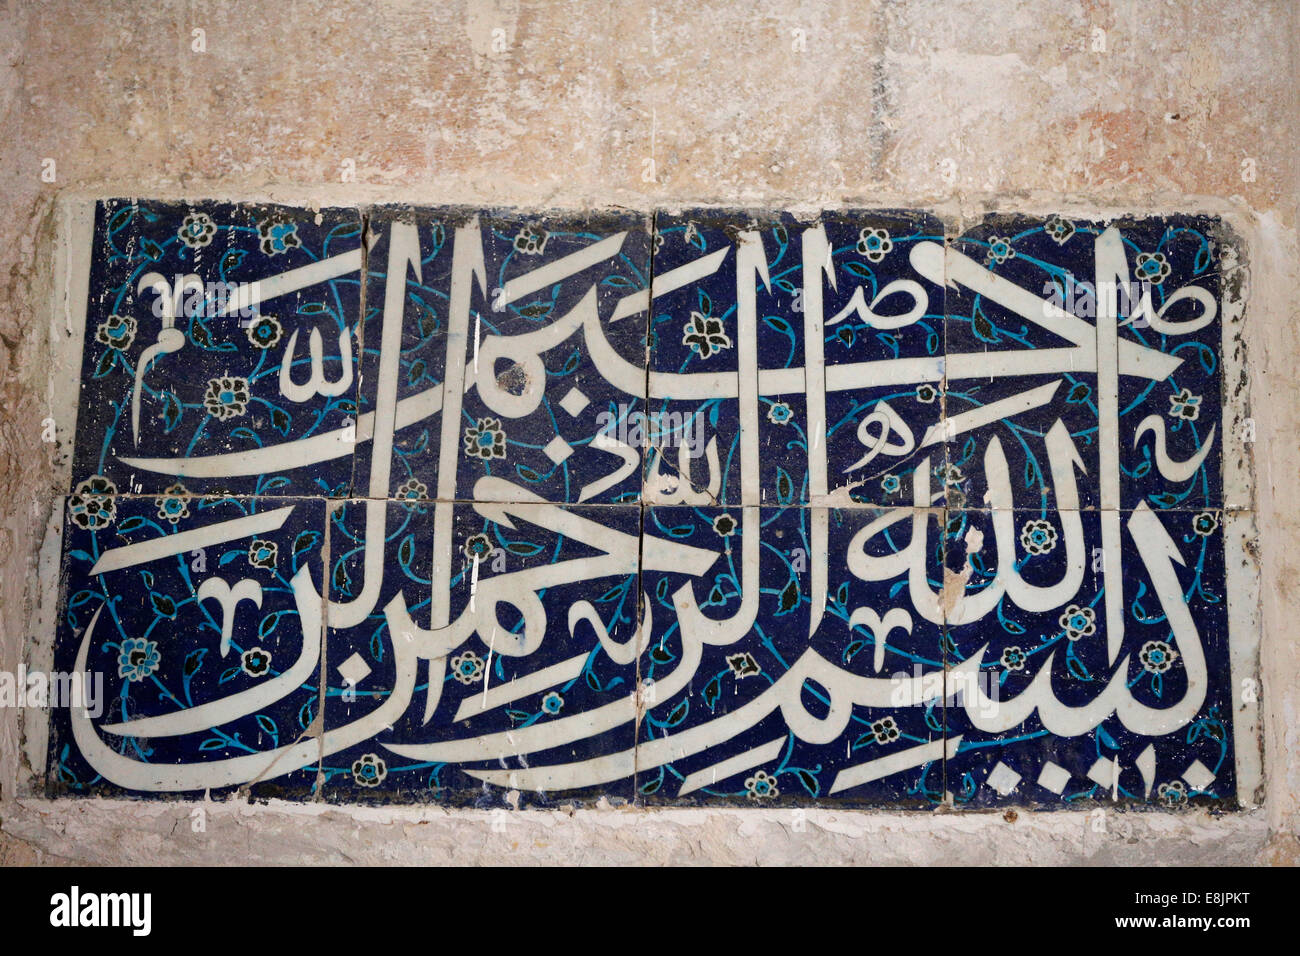 بسم الله الرحمن الرحيم
alamy
Image ID: E8JPKT
www.alamy.com